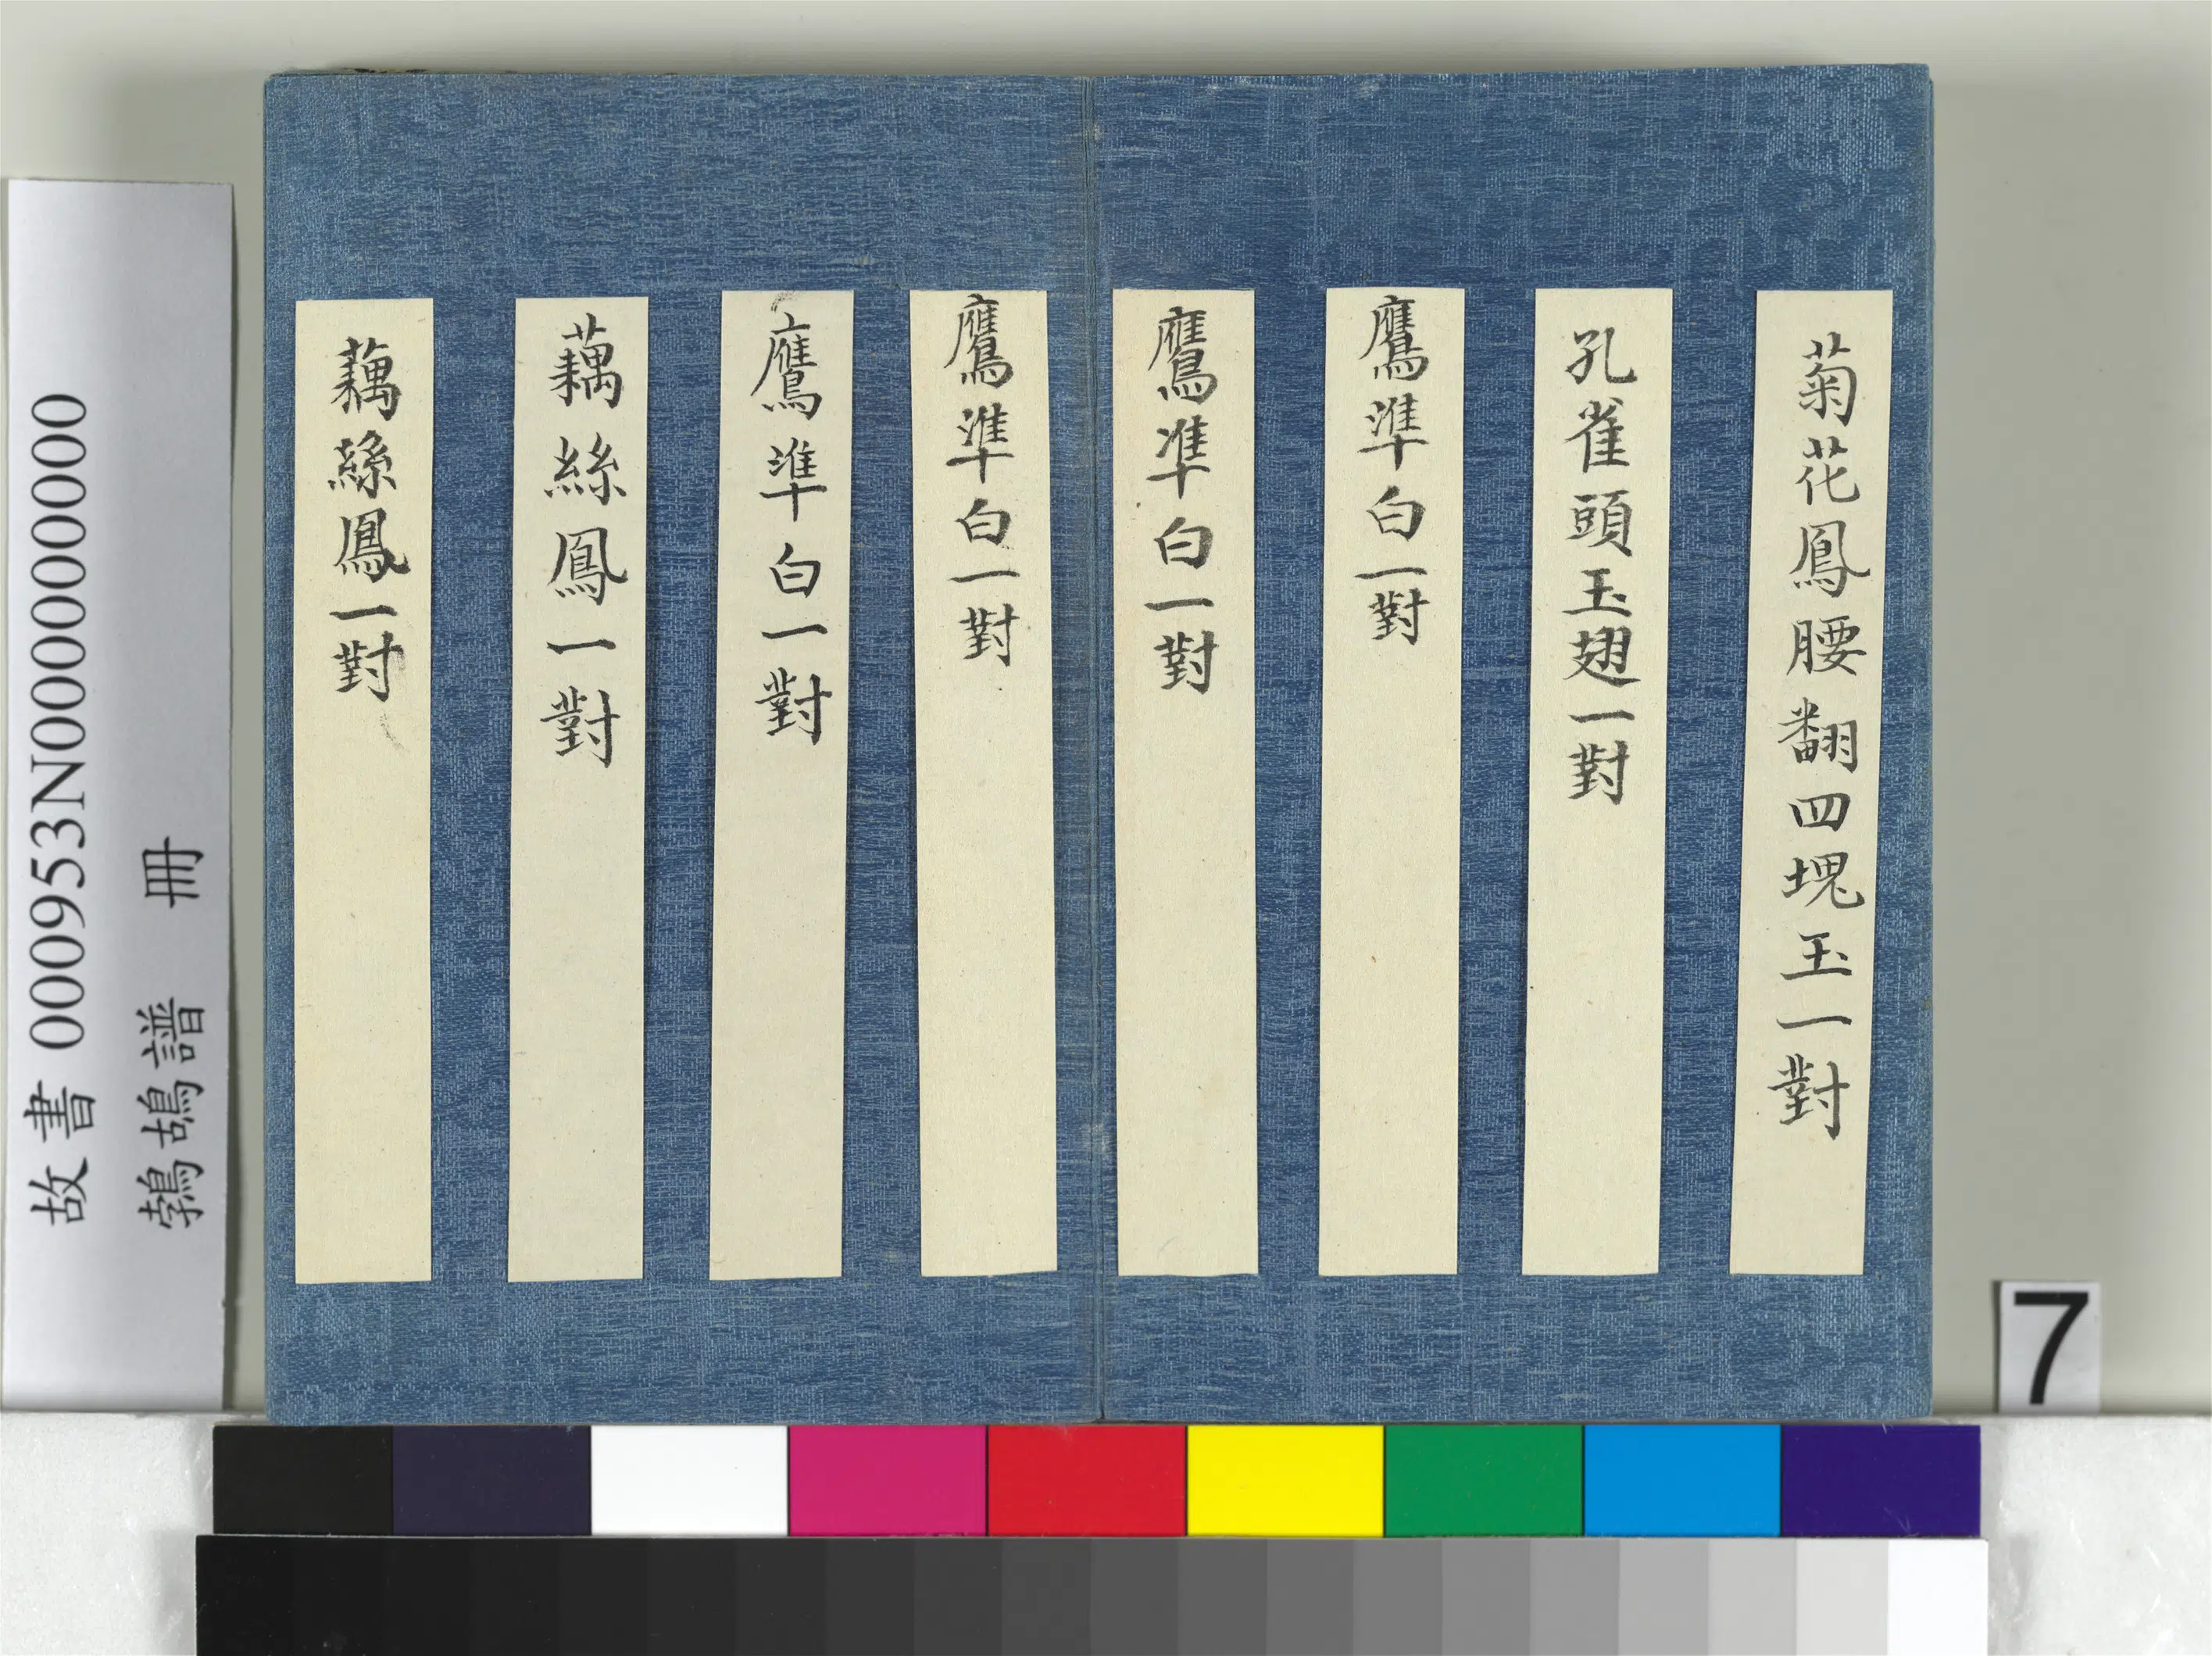 菊花鳳腰翻四塊玉一對
孔雀頭玉翅一對
鷹準白一對
鷹準白一對
鷹準白一對
鷹準白一對
藕絲鳳一對
藕絲鳳一對
故書 000953N000000000
鵓鴣譜 冊
7